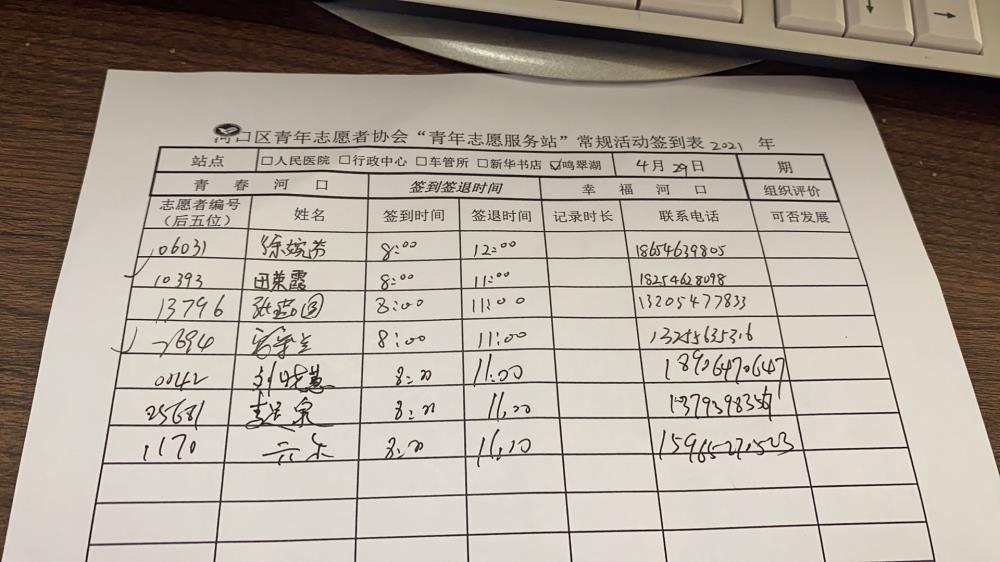 河口区青年志愿者协会“青年志愿服务站”常规活动签到表 2021 年
站点 □人民医院 □行政中心 □车管所 □新华书店 ☑鸣翠湖 4月29日 期
青春河口 签到签退时间 幸福河口 组织评价
志愿者编号（后五位） 姓名 签到时间 签退时间 记录时长 联系电话 可否发展
06031 徐婉芳 8:00 12:00 18654639805
10393 田荣霞 8:00 11:00 18254628098
13796 8:00 11:00 13205477833
8:00 11:00 13255635316
0042 刘晓慧 8:00 11:00 18906470647
25681 8:00 11:00
1170 8:00 11:00